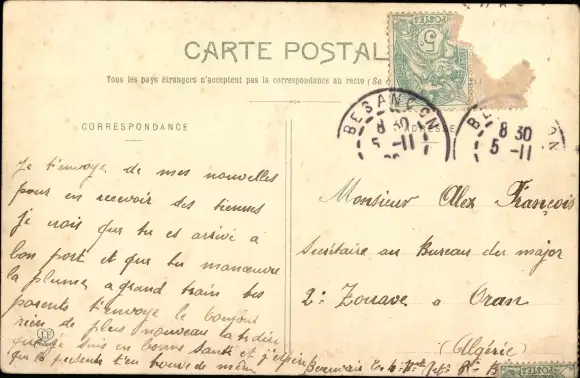 CARTE POSTAL
Tous les pays étrangers n'acceptent pas la correspondance au recto (Se
CORRESPONDANCE
ADRESSE
POSTES
5
BESANCON
8 30
5 -11
8 30
5 -11
Je t'envoye de mes nouvelles
pour en recevoir des tiennes
je vois que tu es arrivé à
bon port et que tu manœuvre
la plume a grand train tes
parents t'envoye le bonjour
rien de plus nouveau
suis en bonne santé et j'espère
que la présente t'en trouve de même
Monsieur Alex François
Secrétaire au Bureau du major
2e Zouave a Oran
(Algérie)